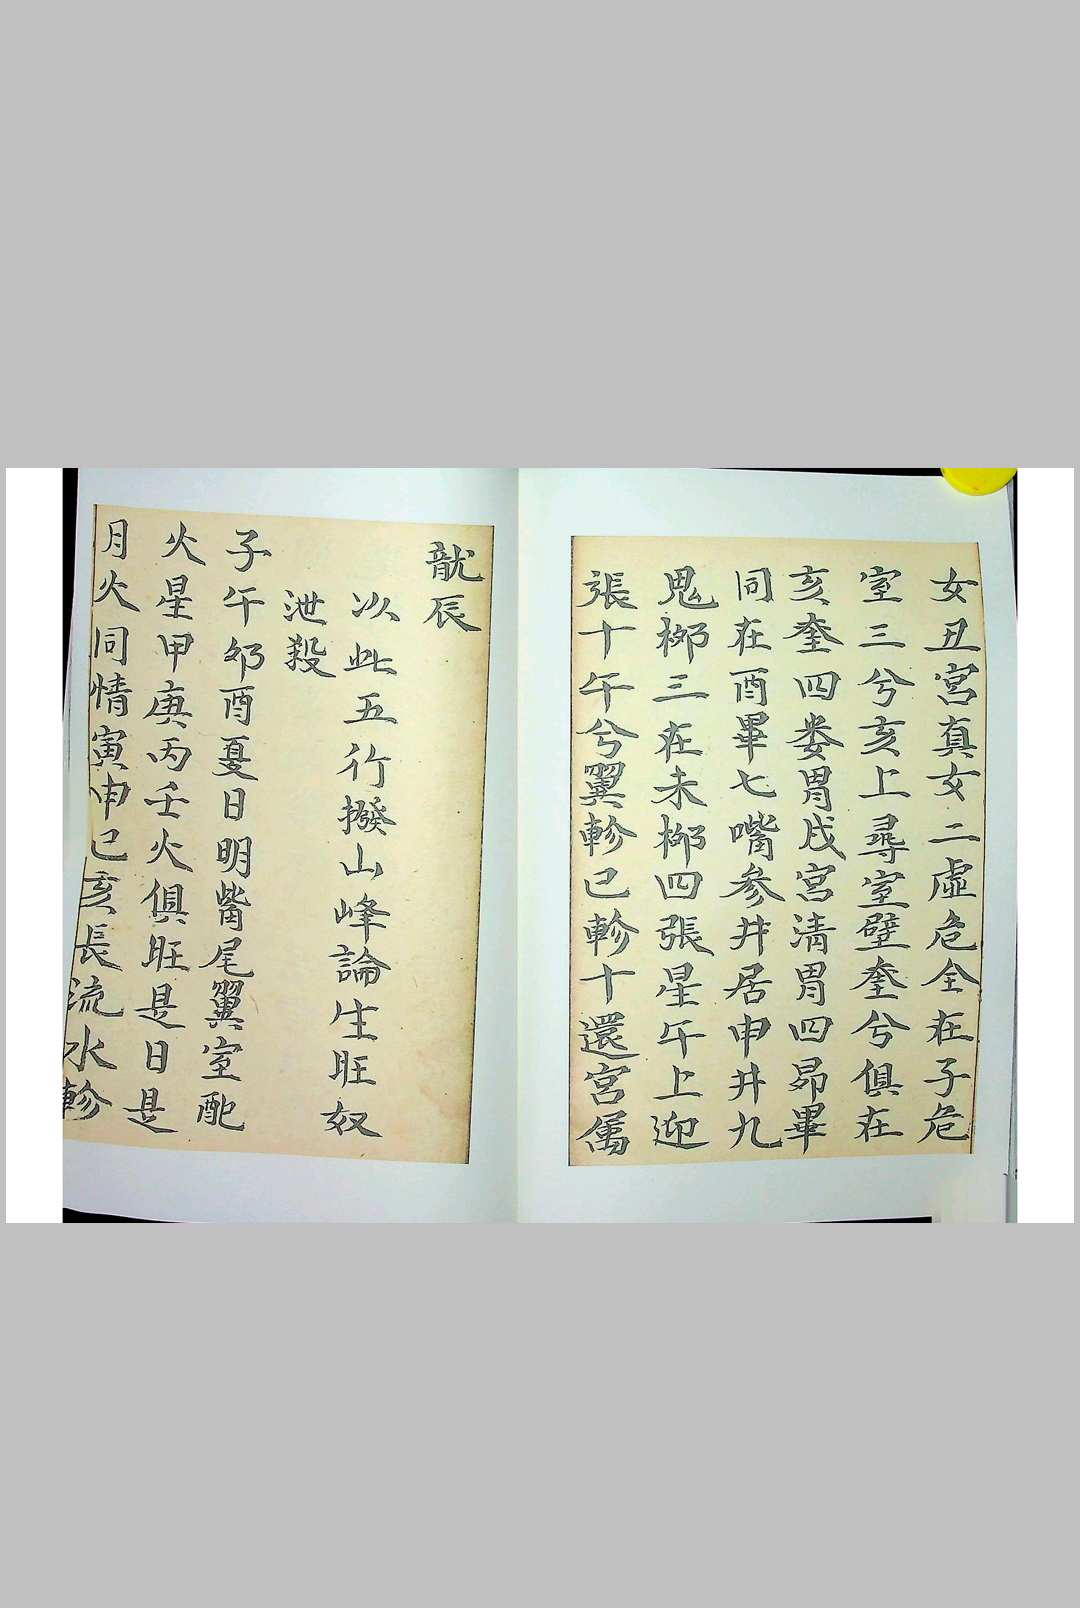 女丑宮真女二虛危全在子危
室三兮亥上尋室壁奎兮俱在
亥奎四娄胃戌宮清胃四昴畢
同在酉畢七嘴参井居申井九
鬼栁三在未栁四張星午上迎
張十午兮翼軫巳軫十還宮属
龍辰
以此五行撥山峰論生旺奴
泄殺
子午夘酉憂日明觜尾翼室配
火星甲庚丙壬火俱旺是日是
月火同情寅申巳亥長流水軫